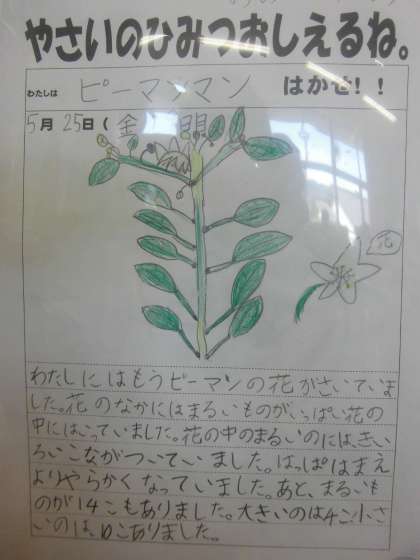 やさいのひみつおしえるね。
わたしは ピーマツマン はかせ！！
5月25日（金）
花
わたしにはもうピーマンの花がさいていま
した。花のなかにはまるいものがいっぱい花の
中にはいっていました。花の中のまるいのには、きい
ろいこながついていました。はっぱはまえ
よりやらかくなっていました。あと、まるいも
のが14こもありました。大きいのは4こ小さ
いのは、10こありました。